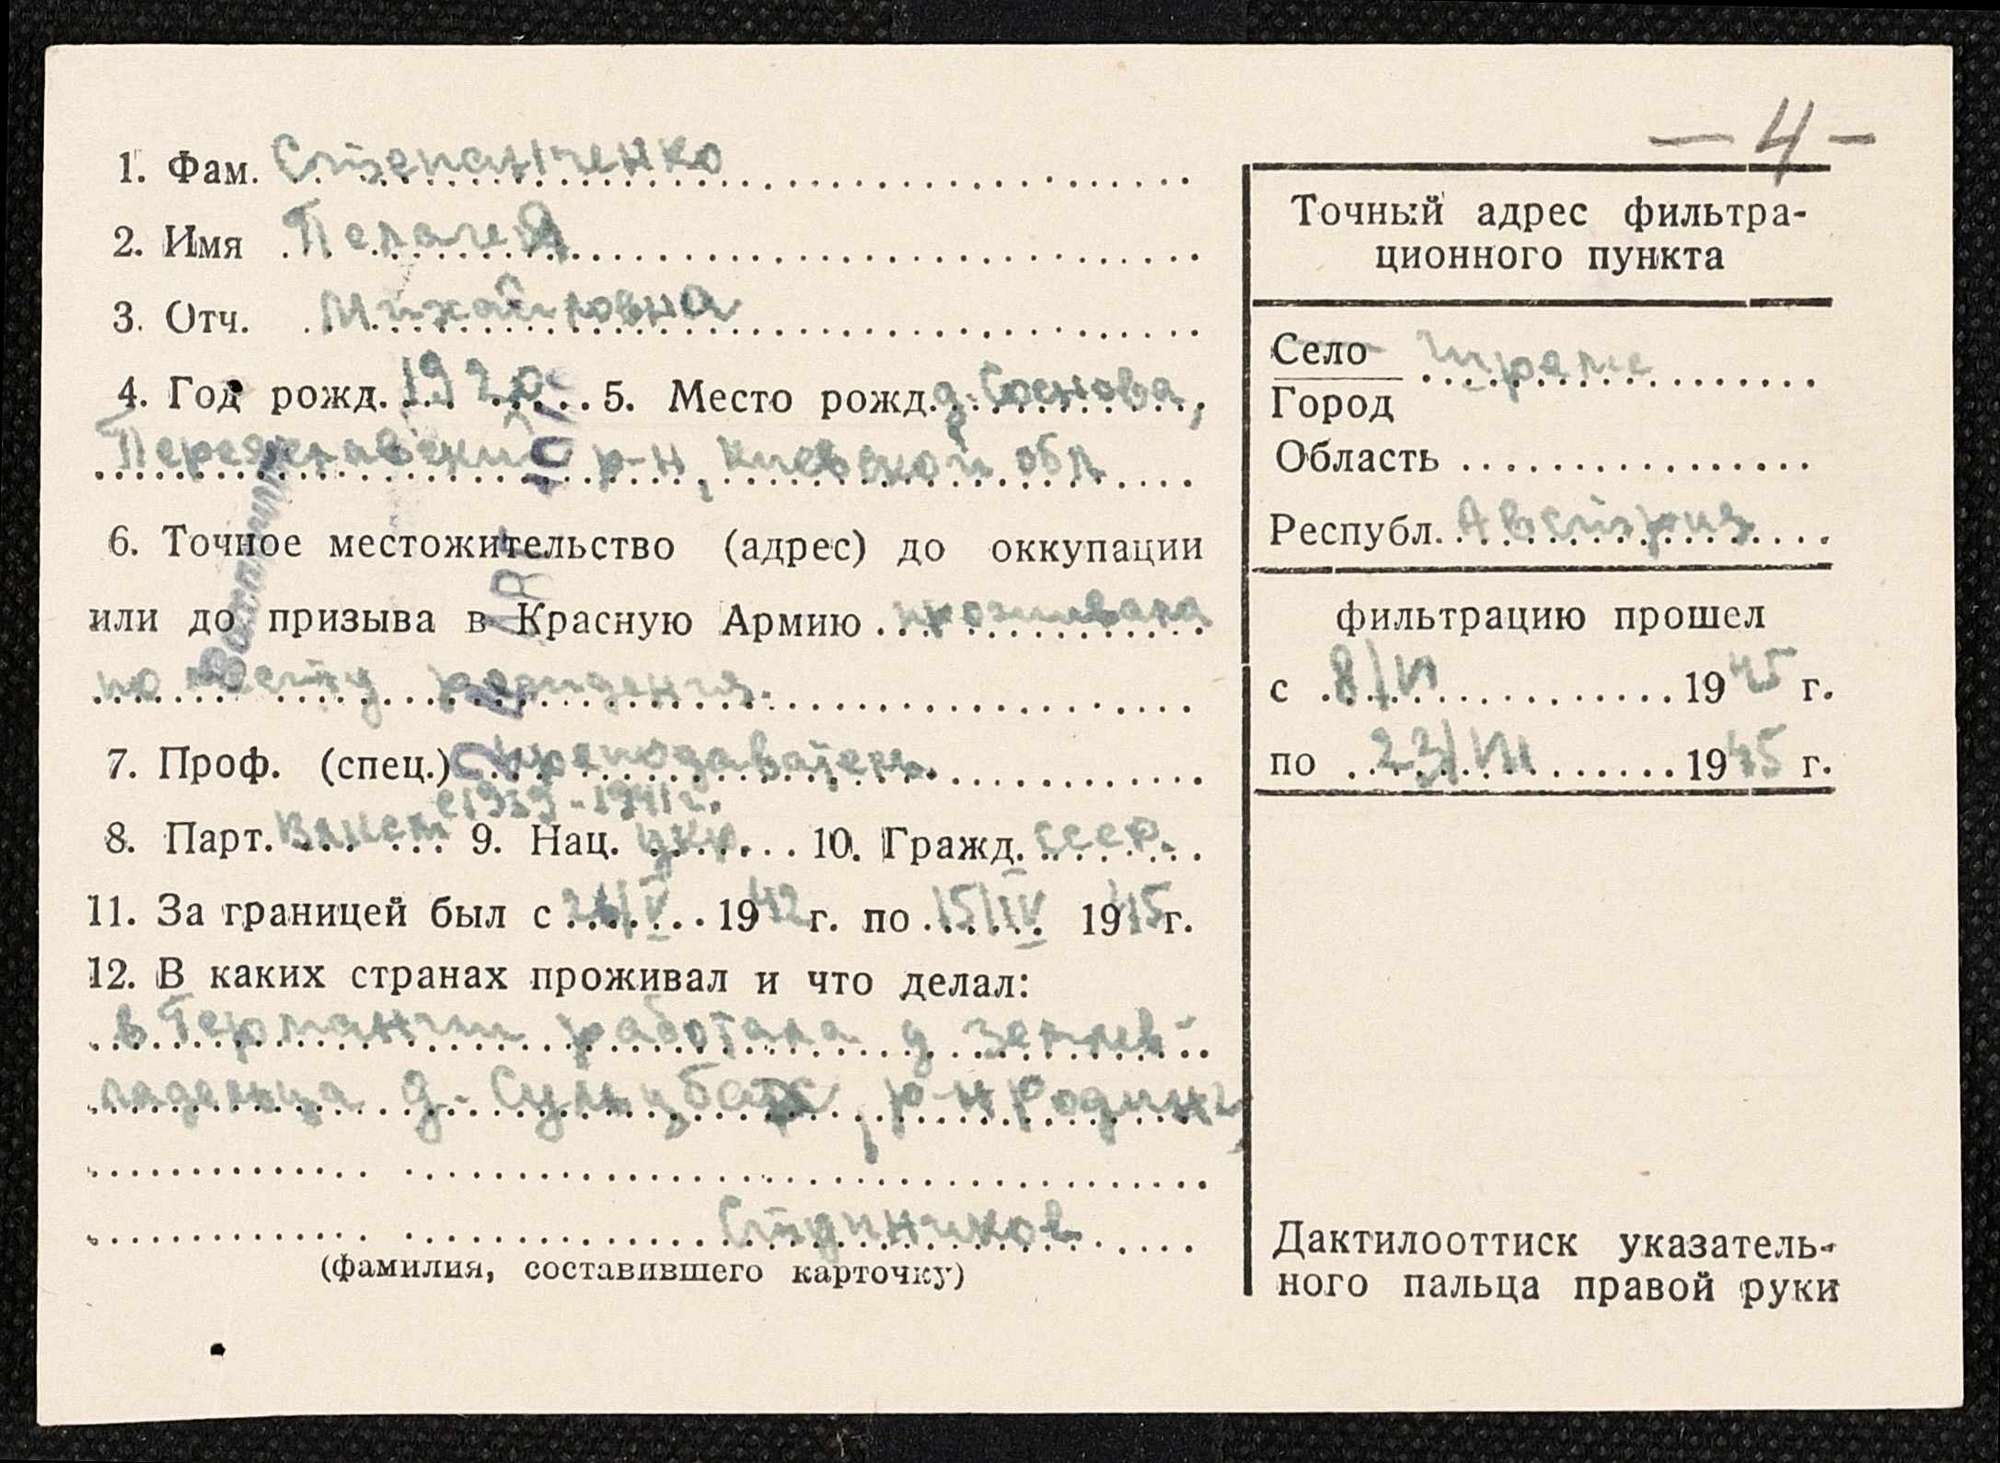 — 4 —
1. Фам. Степанченко
2. Имя Пелагея
3. Отч. Михайловна
4. Год рожд. 1920 5. Место рожд. д. Соснова,
Переяславский р-н, Киевской обл
6. Точное местожительство (адрес) до оккупации
или до призыва в Красную Армию проживала
по месту рождения.
7. Проф. (спец.) преподаватель
с 1939 - 1941 г.
8. Парт. 9. Нац. укр. 10. Гражд. ссср.
11. За границей был с V 1942 г. по 15/IV 1945 г.
12. В каких странах проживал и что делал:
в Германии работала у землев-
ладельца д. Сульцбах, р-н Родинг
Студиников
(фамилия, составившего карточку)
Точный адрес фильтра-
ционного пункта
Село
Город
Область
Республ. Австрия
фильтрацию прошел
с 8/VI 1945 г.
по 23/VIII 1945 г.
Дактилооттиск указатель-
ного пальца правой руки